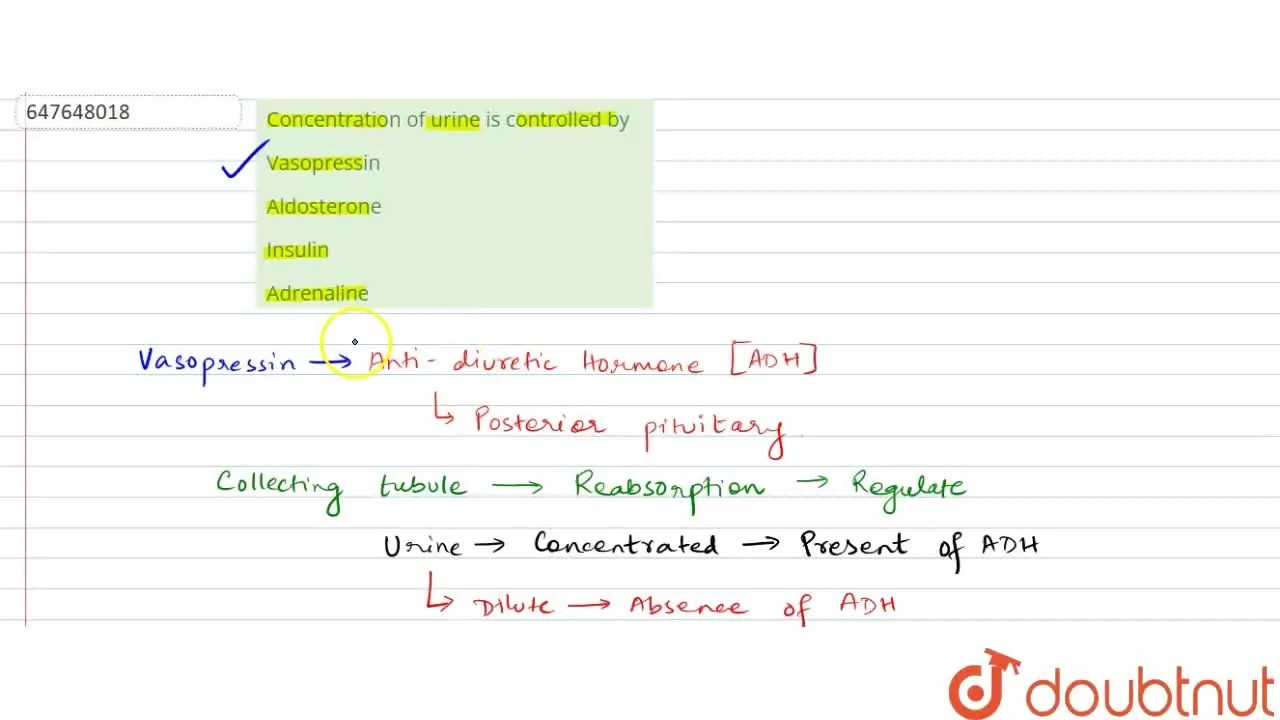 647648018
Concentration of urine is controlled by
Vasopressin
Aldosterone
Insulin
Adrenaline
Vasopressin → Anti-diuretic Hormone [ADH]
↳ Posterior pituitary
Collecting tubule → Reabsorption → Regulate
Urine → Concentrated → Present of ADH
↳ Dilute → Absence of ADH
doubtnut